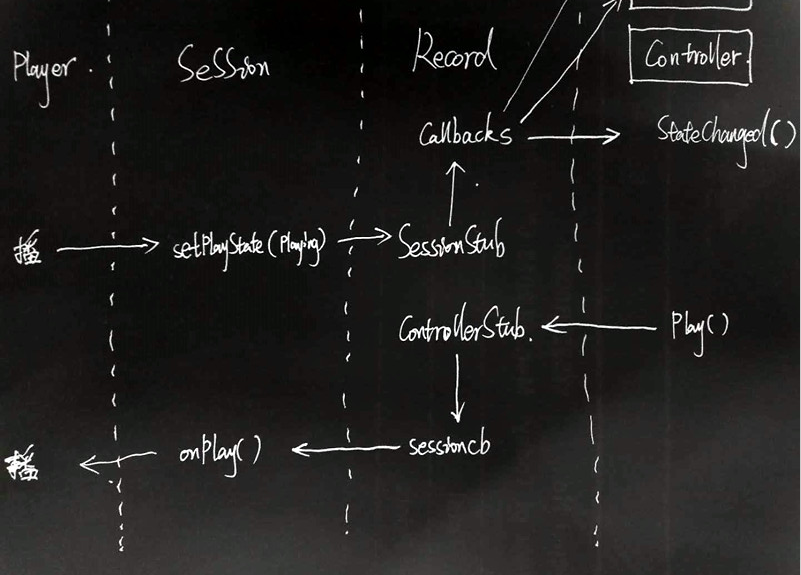 Player.
Session
Record
Controller.
Callbacks
StateChanged()
播
setPlayState(Playing)
SessionStub
ControllerStub.
Play()
播
onPlay()
sessioncb